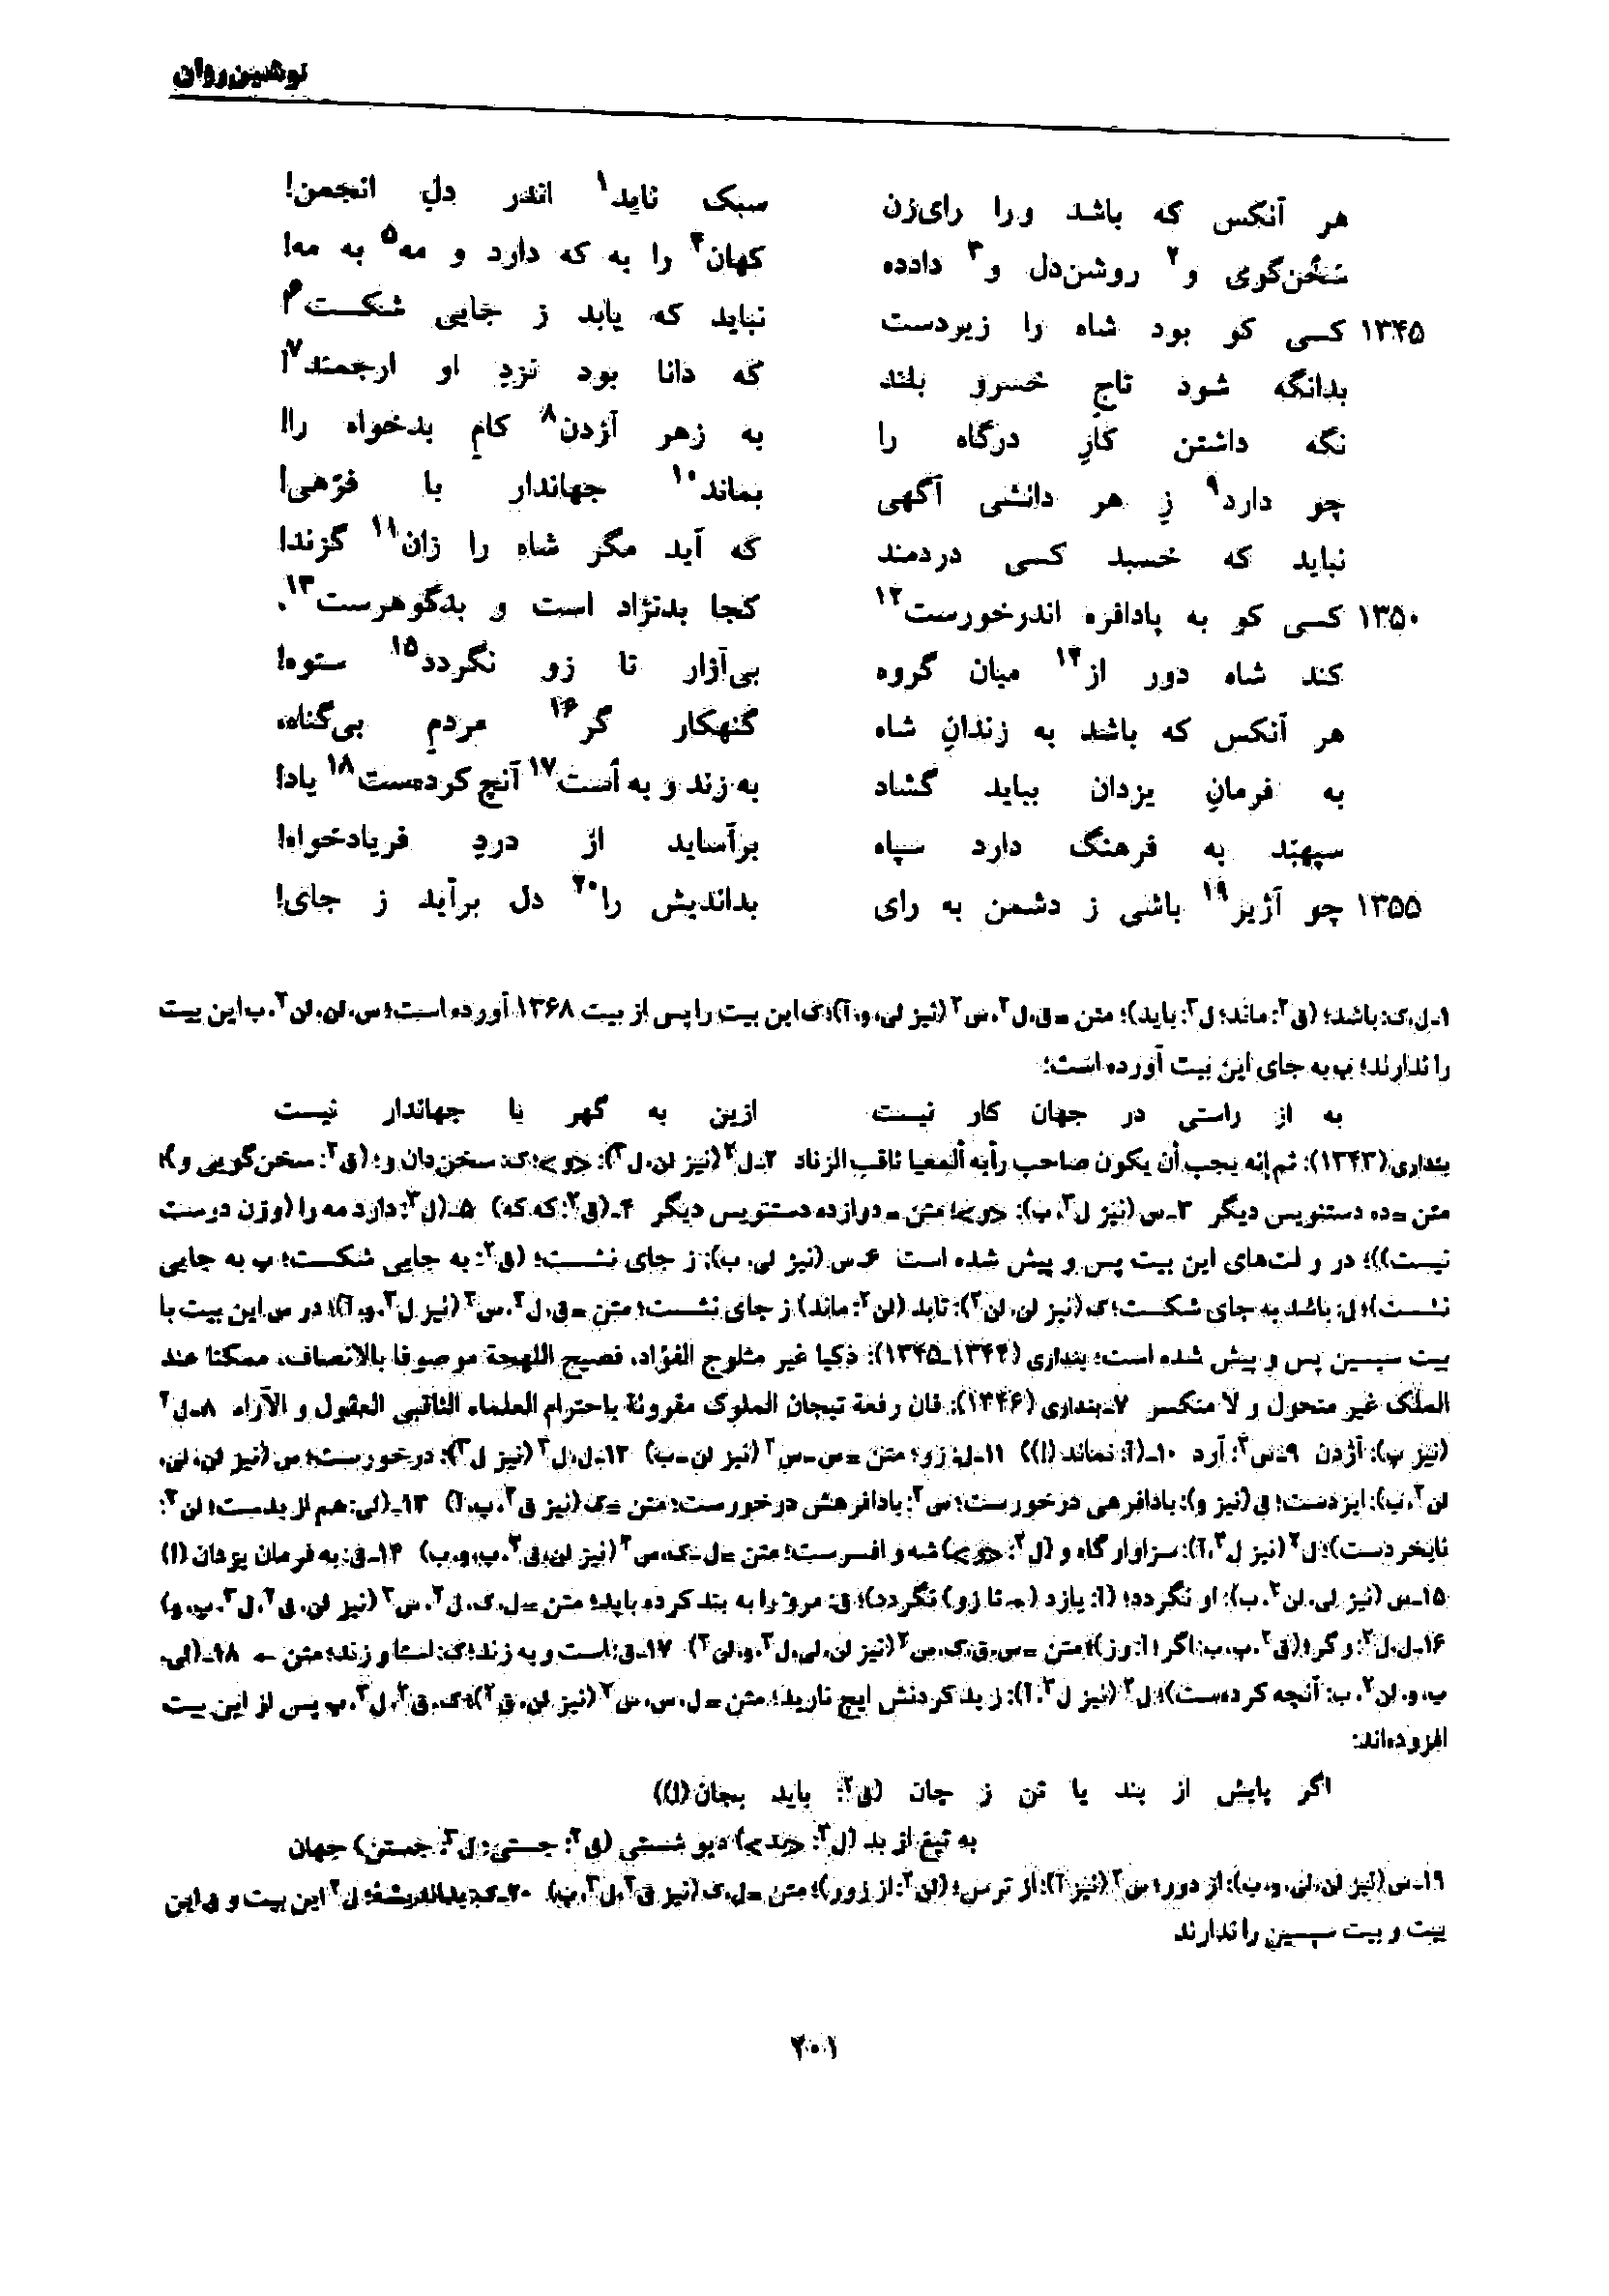 نوشین‌روان
هر آنکس که باشد ورا رای‌زن سبک ناید۱ اندر دلِ انجمن!
سَخُن‌گوی و۲ روشن‌دل و۳ دادده کهان۴ را به که دارد و مه۵ به مه!
۱۳۴۵ کسی کو بود شاه را زیردست نباید که یابد ز جایی شکست۶!
بدانگه شود تاجِ خسرو بلند که دانا بود نزدِ او ارجمند۷!
نگه داشتن کارِ درگاه را به زهر آژدن۸ کامِ بدخواه را!
چو دارد۹ زِ هر دانشی آگهی بماند۱۰ جهاندار با فرّهی!
نباید که خسبد کسی دردمند که آید مگر شاه را زان۱۱ گزند!
۱۳۵۰ کسی کو به پادافره اندرخورست۱۲ کجا بدنژاد است و بدگوهرست۱۳،
کند شاه دور از۱۴ میان گروه بی‌آزار تا زو نگردد۱۵ ستوه!
هر آنکس که باشد به زندانِ شاه گنهکار گر۱۶ مردمِ بی‌گناه،
به فرمانِ یزدان بباید گشاد به زند و به اُست۱۷ آنچ کرده‌ست۱۸ یاد!
سپهبَد به فرهنگ دارد سپاه برآساید از دردِ فریادخواه!
۱۳۵۵ چو آژیر۱۹ باشی ز دشمن به رای بداندیش را۲۰ دل برآید ز جای!
۱ـ ل، ک: باشد؛ (ق۲: ماند؛ ل۳: باید)؛ متن = ق، ل۲، س۲ (نیز لی، و، آ)؛ ک این بیت را پس از بیت ۱۳۶۸ آورده است؛ س، لن، لن۲، ب این بیت
را ندارند؛ پ به جای این بیت آورده است:
به از راستی در جهان کار نیست ازین به گهر با جهاندار نیست
بنداری (۱۳۴۳): ثم إنه یجب أن یکون صاحب رأیه ألمعیا ثاقب الزناد ۲ـ ل۲ (نیز لن، ل۳): <و>؛ ک: سخن‌دان و؛ (ق۲: سخن‌گویی و)؛
متن = ده دستنویس دیگر ۳ـ س (نیز ل۳، ب): <و>؛ متن = دوازده دستنویس دیگر ۴ـ (ق۲: که که) ۵ـ (ل۳: دارد مه را (وزن درست
نیست))؛ در و لت‌های این بیت پس و پیش شده است ۶ـ س (نیز لی، ب): ز جای نشست؛ (ق۲: به جایی شکست؛ پ به جایی
نشست)؛ ل: باشد به جای شکست؛ ک (نیز لن، لن۲): تابد (لن۲: ماند) ز جای نشست؛ متن = ق، ل۲، س۲ (نیز ل۳، و، آ)؛ در س این بیت با
بیت سپسین پس و پیش شده است؛ بنداری (۱۳۴۴ـ۱۳۴۵): ذکیا غیر مثلوج الفؤاد، فصیح اللهجة موصوفا بالانصاف، ممکنا عند
الملک غیر متحول و لا منکسر ۷ـ بنداری (۱۳۴۶): فان رفعة تیجان الملوک مقرونة باحترام العلماء الثاقبی العقول و الآراء ۸ـ ل۲
(نیز پ): آژدن ۹ـ س۲: آرد ۱۰ـ (آ: نماند (!)) ۱۱ـ ل: زو؛ متن = س ـ س۲ (نیز لن ـ ب) ۱۲ـ ل، ل۲ (نیز ل۳): درخورست؛ س (نیز لن، لی،
لن۲، ب): ایزدست؛ ق (نیز و): بادافرهی درخورست؛ س۲: بادافرهش درخورست؛ متن = ک (نیز ق۲، پ، آ) ۱۳ـ (لی: هم از بدست؛ لن۲:
نابخردست)؛ ل۲ (نیز ل۳، آ): سزاوار گاه و (ل۳: <و>) شه و افسرست؛ متن = ل ـ ک، س۲ (نیز لن، ق۲، پ، و، ب) ۱۴ـ ق: به فرمان یزدان (!)
۱۵ـ س (نیز لی، لن۲، ب): او نگردد؛ (آ: یازد (ــ تا زو) نگردد)؛ ق: مرو را به بند کرده باید؛ متن = ل، ک، ل۲، س۲ (نیز لن، ق۲، ل۳، پ، و)
۱۶ـ ل، ل۲: و گر؛ (ق۲، پ، ب: اگر؛ آ: ور)؛ متن = س، ق، ک، س۲ (نیز لن، لی، ل۳، و، لن۲) ۱۷ـ ق: است و به زند؛ ک: استا و زند؛ متن ← ۱۸ـ (لی،
پ، و، لن۲، ب: آنچه کرده‌ست)؛ ل۲ (نیز ل۳، آ): ز بد کردنش ایچ نارید؛ متن = ل، س، س۲ (نیز لن، ق۲)؛ ک، ق۲، ل۳، پ پس از این بیت
افزوده‌اند:
اگر پایش از بند یا تن ز جان (ق۲: باید بجان (!))
به تیغ از بد (ل۳: <بد>) دیو شستی (ق۲: جستی؛ ل۳: جستن) جهان
۱۹ـ س (نیز لن، لی، و، ب): از دور؛ س۲ (نیز آ): از ترس؛ (لن۲: از زور)؛ متن = ل، ک (نیز ق۲، ل۳، پ) ۲۰ـ ک: بداندیشه؛ ل۲ این بیت و ق این
بیت و بیت سپسین را ندارند
۲۰۱